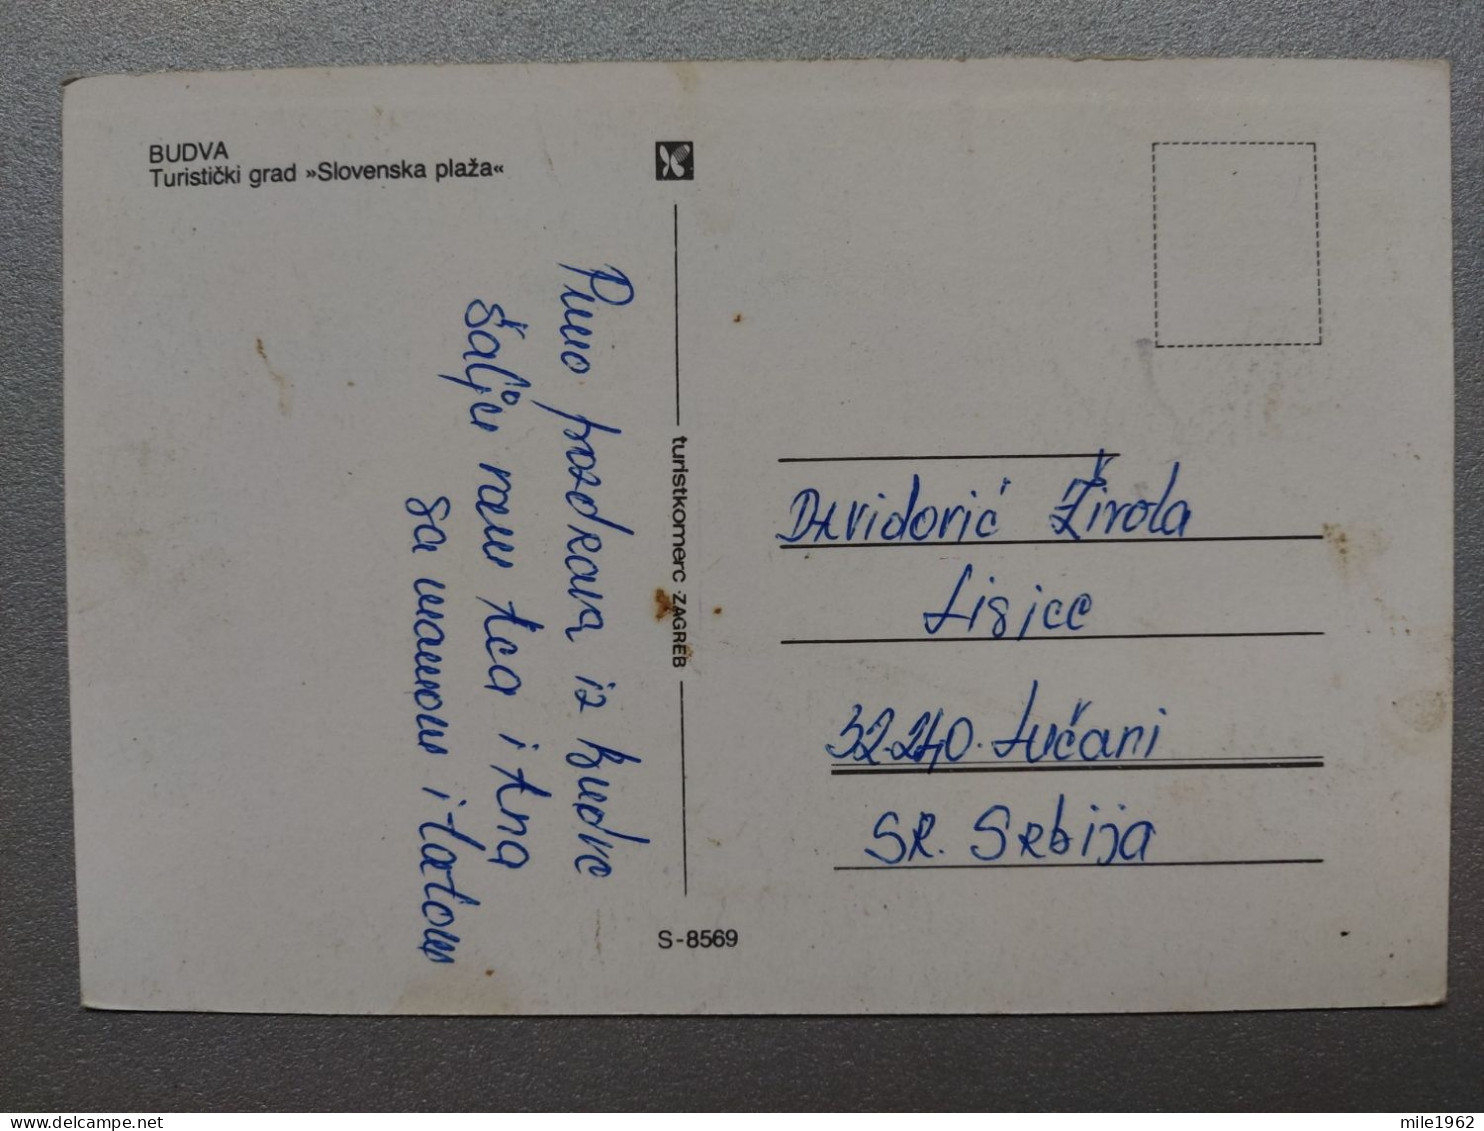 BUDVA
Turistički grad »Slovenska plaža«
Puno pozdrava iz Budve
šalju vam Aca i Ana
sa mamom i tatom
turistkomerc ZAGREB
S-8569
Davidović Živola
Lisice
32240. Lučani
SR. Srbija
mile1962